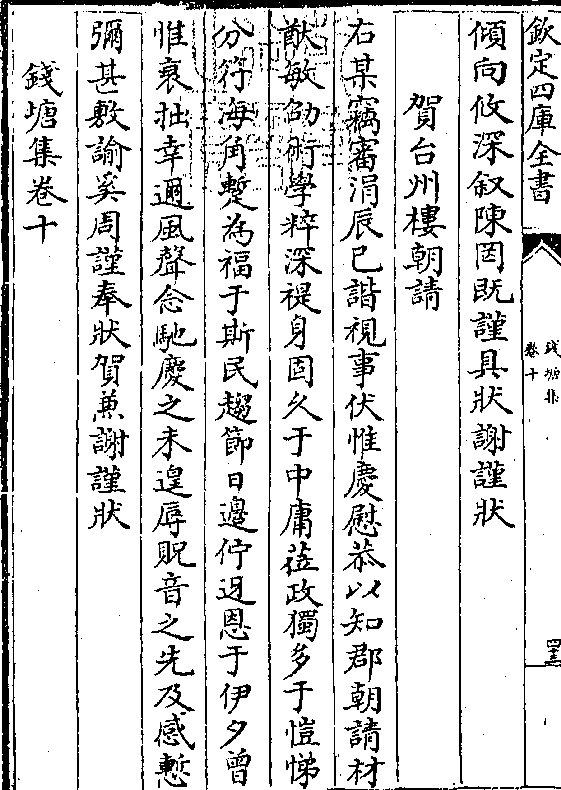 欽定四庫全書
錢塘集
卷十
四十三
傾向攸深叙陳罔既謹具狀謝謹狀
賀台州樓朝請
右某竊審涓辰已諧視事伏惟慶慰恭以知郡朝請材
猷敏劭術學粹深禔身固久于中庸莅政獨多于愷悌
分符海角蹔為福于斯民趨節日邊佇迓恩于伊夕曾
惟衰拙幸邇風聲念馳慶之未遑辱貺音之先及感慙
彌甚敷諭奚周謹奉狀賀兼謝謹狀
錢塘集卷十